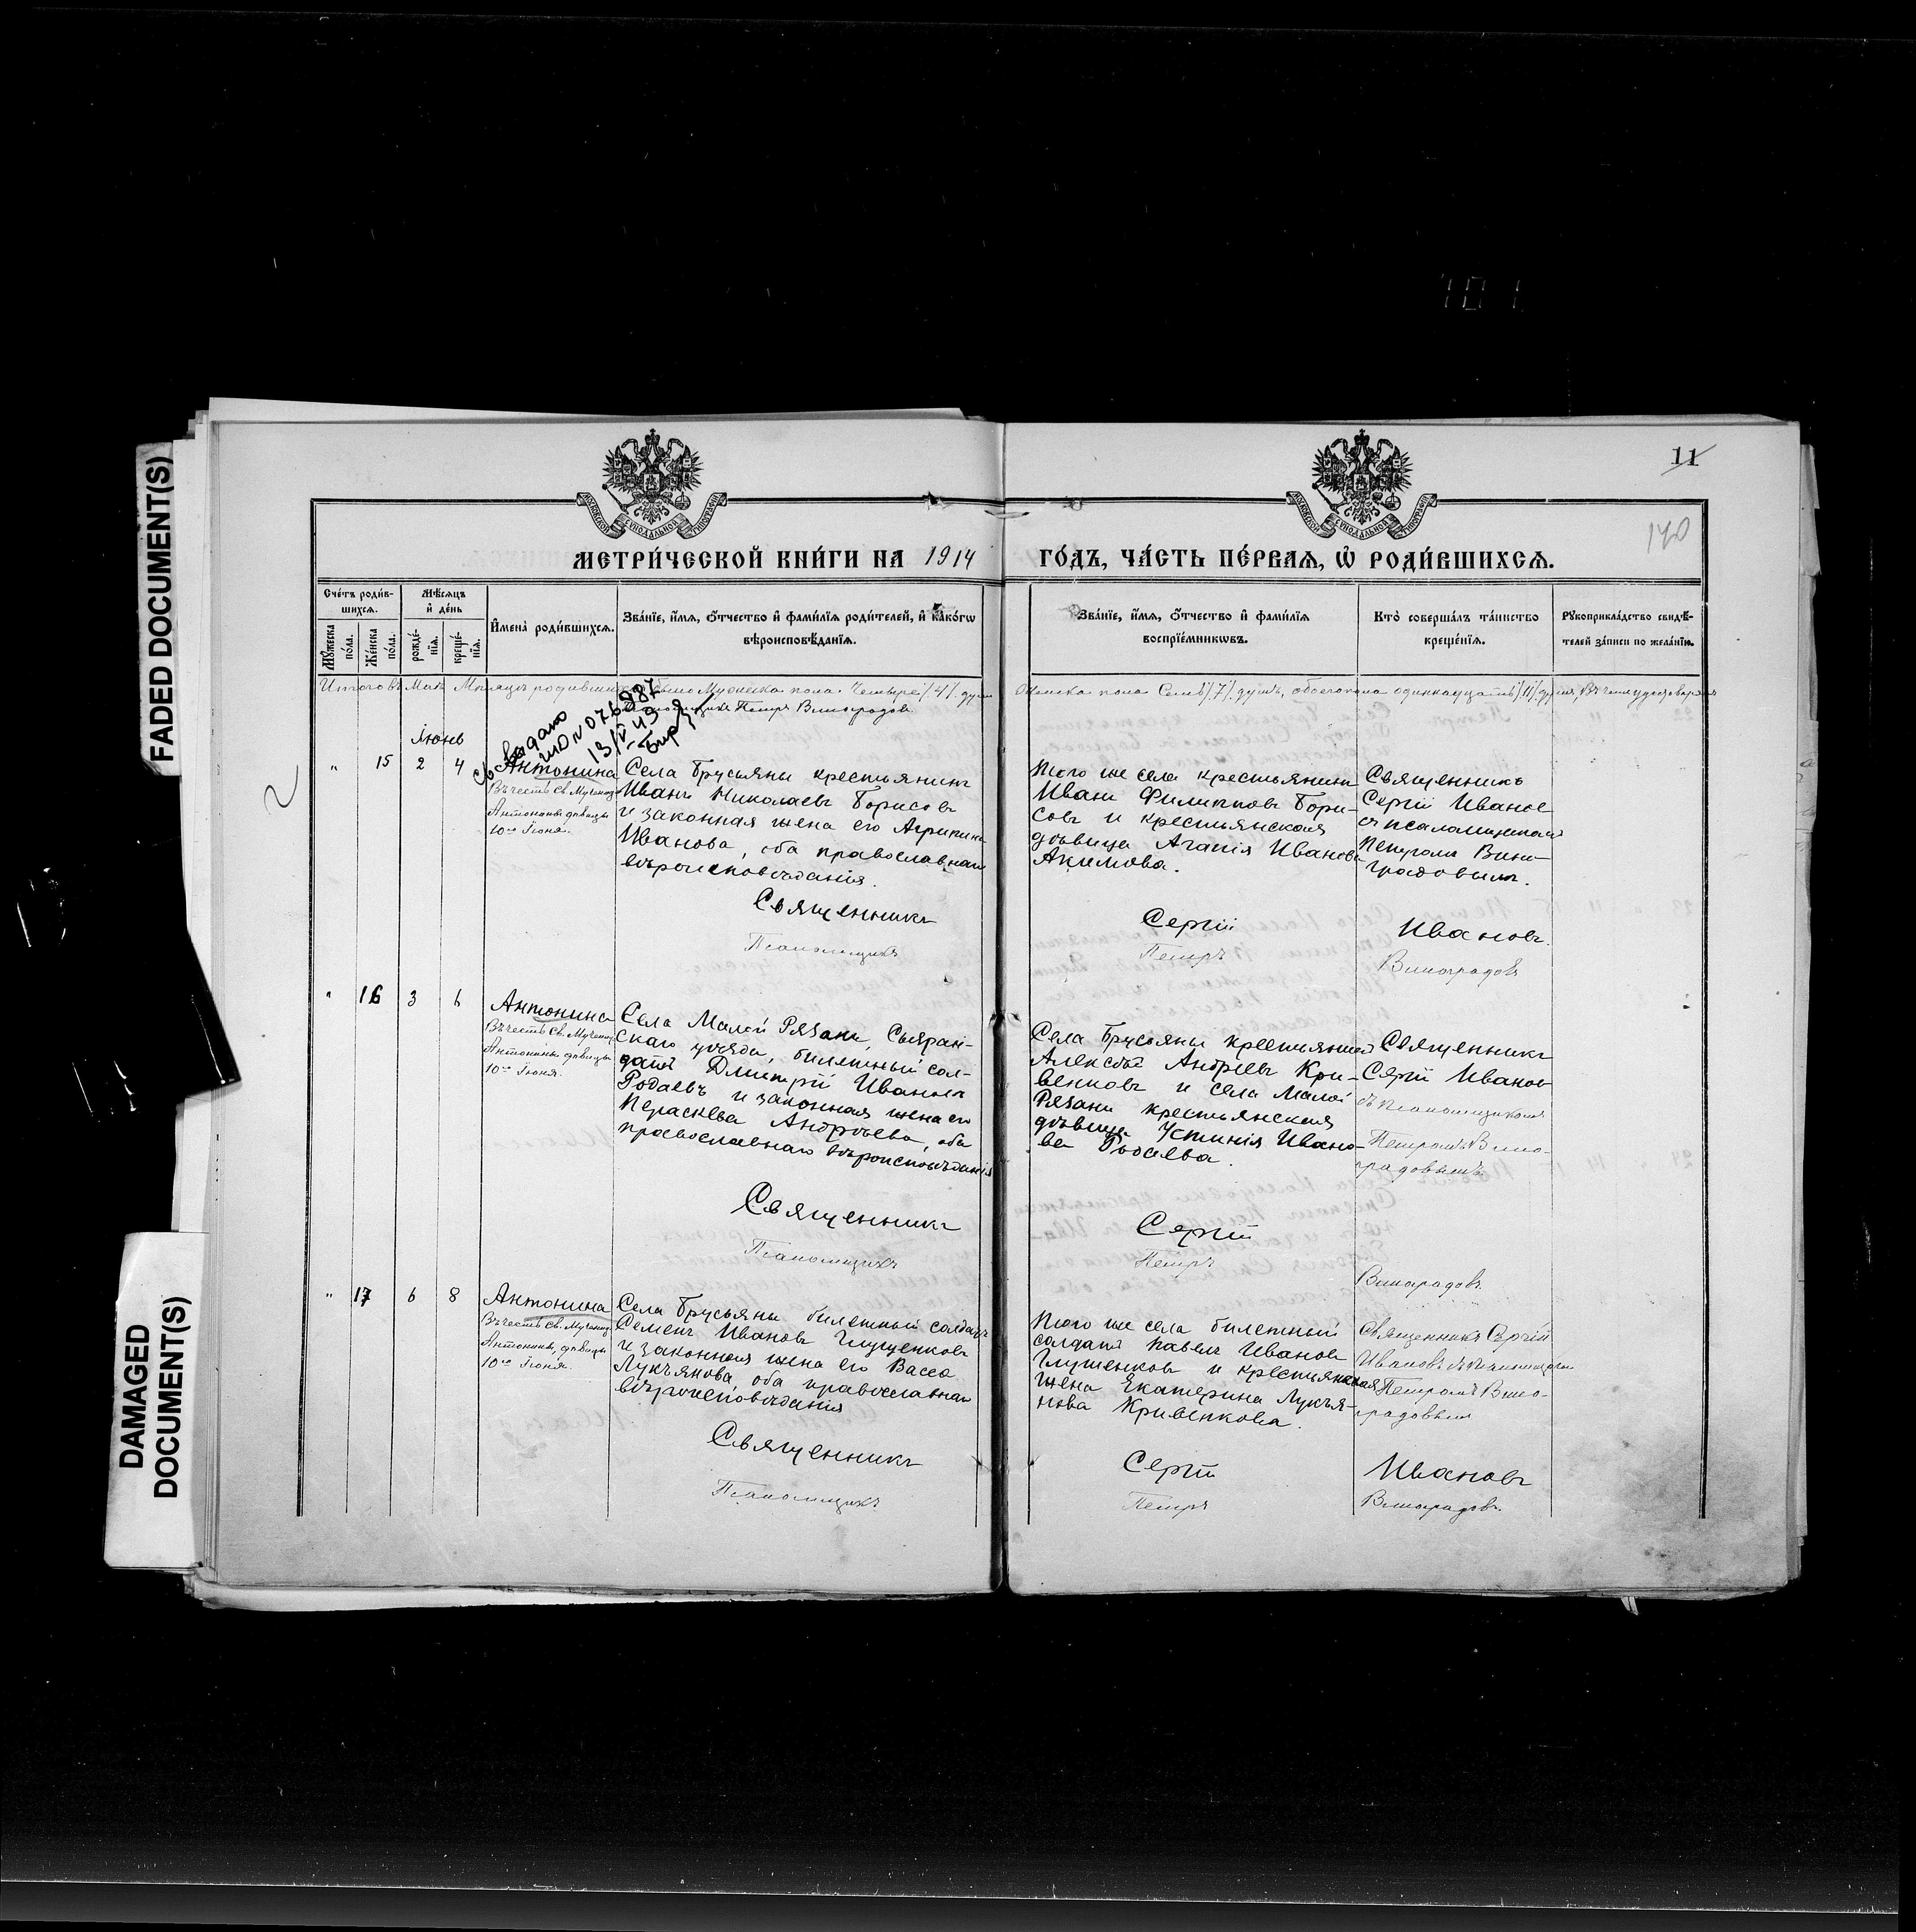 101
FADED DOCUMENT(S)
DAMAGED
DOCUMENT(S)
11
140
МОСКОВСКОЙ СѴНОДАЛЬНОЙ ТИПОГРАФІИ
МОСКОВСКОЙ СѴНОДАЛЬНОЙ ТИПОГРАФІИ
МЕТРИ́ЧЕСКОЙ КНИ́ГИ НА 1914 ГО́ДЪ, ЧА́СТЬ ПЕ́РВАЯ, Ѡ҆ РОДИ́ВШИХСЯ.
Сче́тъ роди́в-
шихся.
Мꙋ́жеска
по́ла.
Же́нска
по́ла.
Мѣ́сяцъ
и҆ де́нь
рожде́-
нїя.
креще́-
нїя.
И҆мена̀ роди́вшихся.
Зва́нїе, и҆́мя, ѻ҆́тчество и҆ фами́лїя роди́телей, и҆ како́гѡ
вѣроисповѣ́данїя.
Зва́нїе, и҆́мя, ѻ҆́тчество и҆ фами́лїя
воспрїе́мникѡвъ.
Кто̀ соверша́лъ та́инство
креще́нїя.
Рꙋкоприкла́дство свидѣ́-
телей за́писи по жела́нїю.
Итого въ Маѣ Мѣсяцѣ родивши было Мужеска пола Четыре /4/ души Женска пола Семь /7/ душъ, обоего пола одиннадцать /11/ душъ, Въ чемъ удостовѣряетъ
Псаломщикъ Петръ Виноградовъ.
выдано
13/V 43
Июнь
" 15 2 4
Антонина
Въ честь св. Мученицы
Антонины дѣвицы
10го Іюня.
Села Брусяны крестьянинъ
Иванъ Николаевъ Борисовъ
и законная жена его Агрипина
Иванова, оба православнаго
вѣроисповѣданія.
Того же села крестьянинъ
Иванъ Филипповъ Бори-
совъ и крестьянская
дѣвица Агапія Иванова
Акимова.
Священникъ
Сергій Ивановъ
съ псаломщикомъ
Петромъ Вино-
градовымъ.
Священникъ Сергій Ивановъ.
Псаломщикъ Петръ Виноградовъ
" 16 3 6
Антонина
Въ честь св. Мученицы
Антонины дѣвицы
10го Іюня.
Села Малой Рязани, Сызран-
скаго уѣзда, билетный сол-
датъ Дмитрій Ивановъ
Родаевъ и законная жена его
Параскева Андреева, оба
православнаго вѣроисповѣданія
Села Брусяны крестьянинъ
Алексѣй Андреевъ Кри-
венковъ и села Малой
Рязани крестьянская
дѣвица Устинія Ивано-
ва Родаева.
Священникъ
Сергій Ивановъ
съ Псаломщикомъ
Петромъ Вино-
градовымъ
Священникъ Сергій
Псаломщикъ Петръ Виноградовъ
" 17 6 8
Антонина
Въ честь св. Мученицы
Антонины, дѣвицы
10го Іюня.
Села Брусяны билетный солдатъ
Семенъ Ивановъ Глущенковъ
и законная жена его Васса
Лукъянова, оба православнаго
вѣроисповѣданія
Того же села билетный
солдатъ Павелъ Ивановъ
Глущенковъ и крестьянская
жена Екатерина Лукъя-
нова Кривенкова.
Священникъ Сергій
Ивановъ съ Псаломщикомъ
Петромъ Вино-
градовымъ
Священникъ Сергій Ивановъ
Псаломщикъ Петръ Виноградовъ.